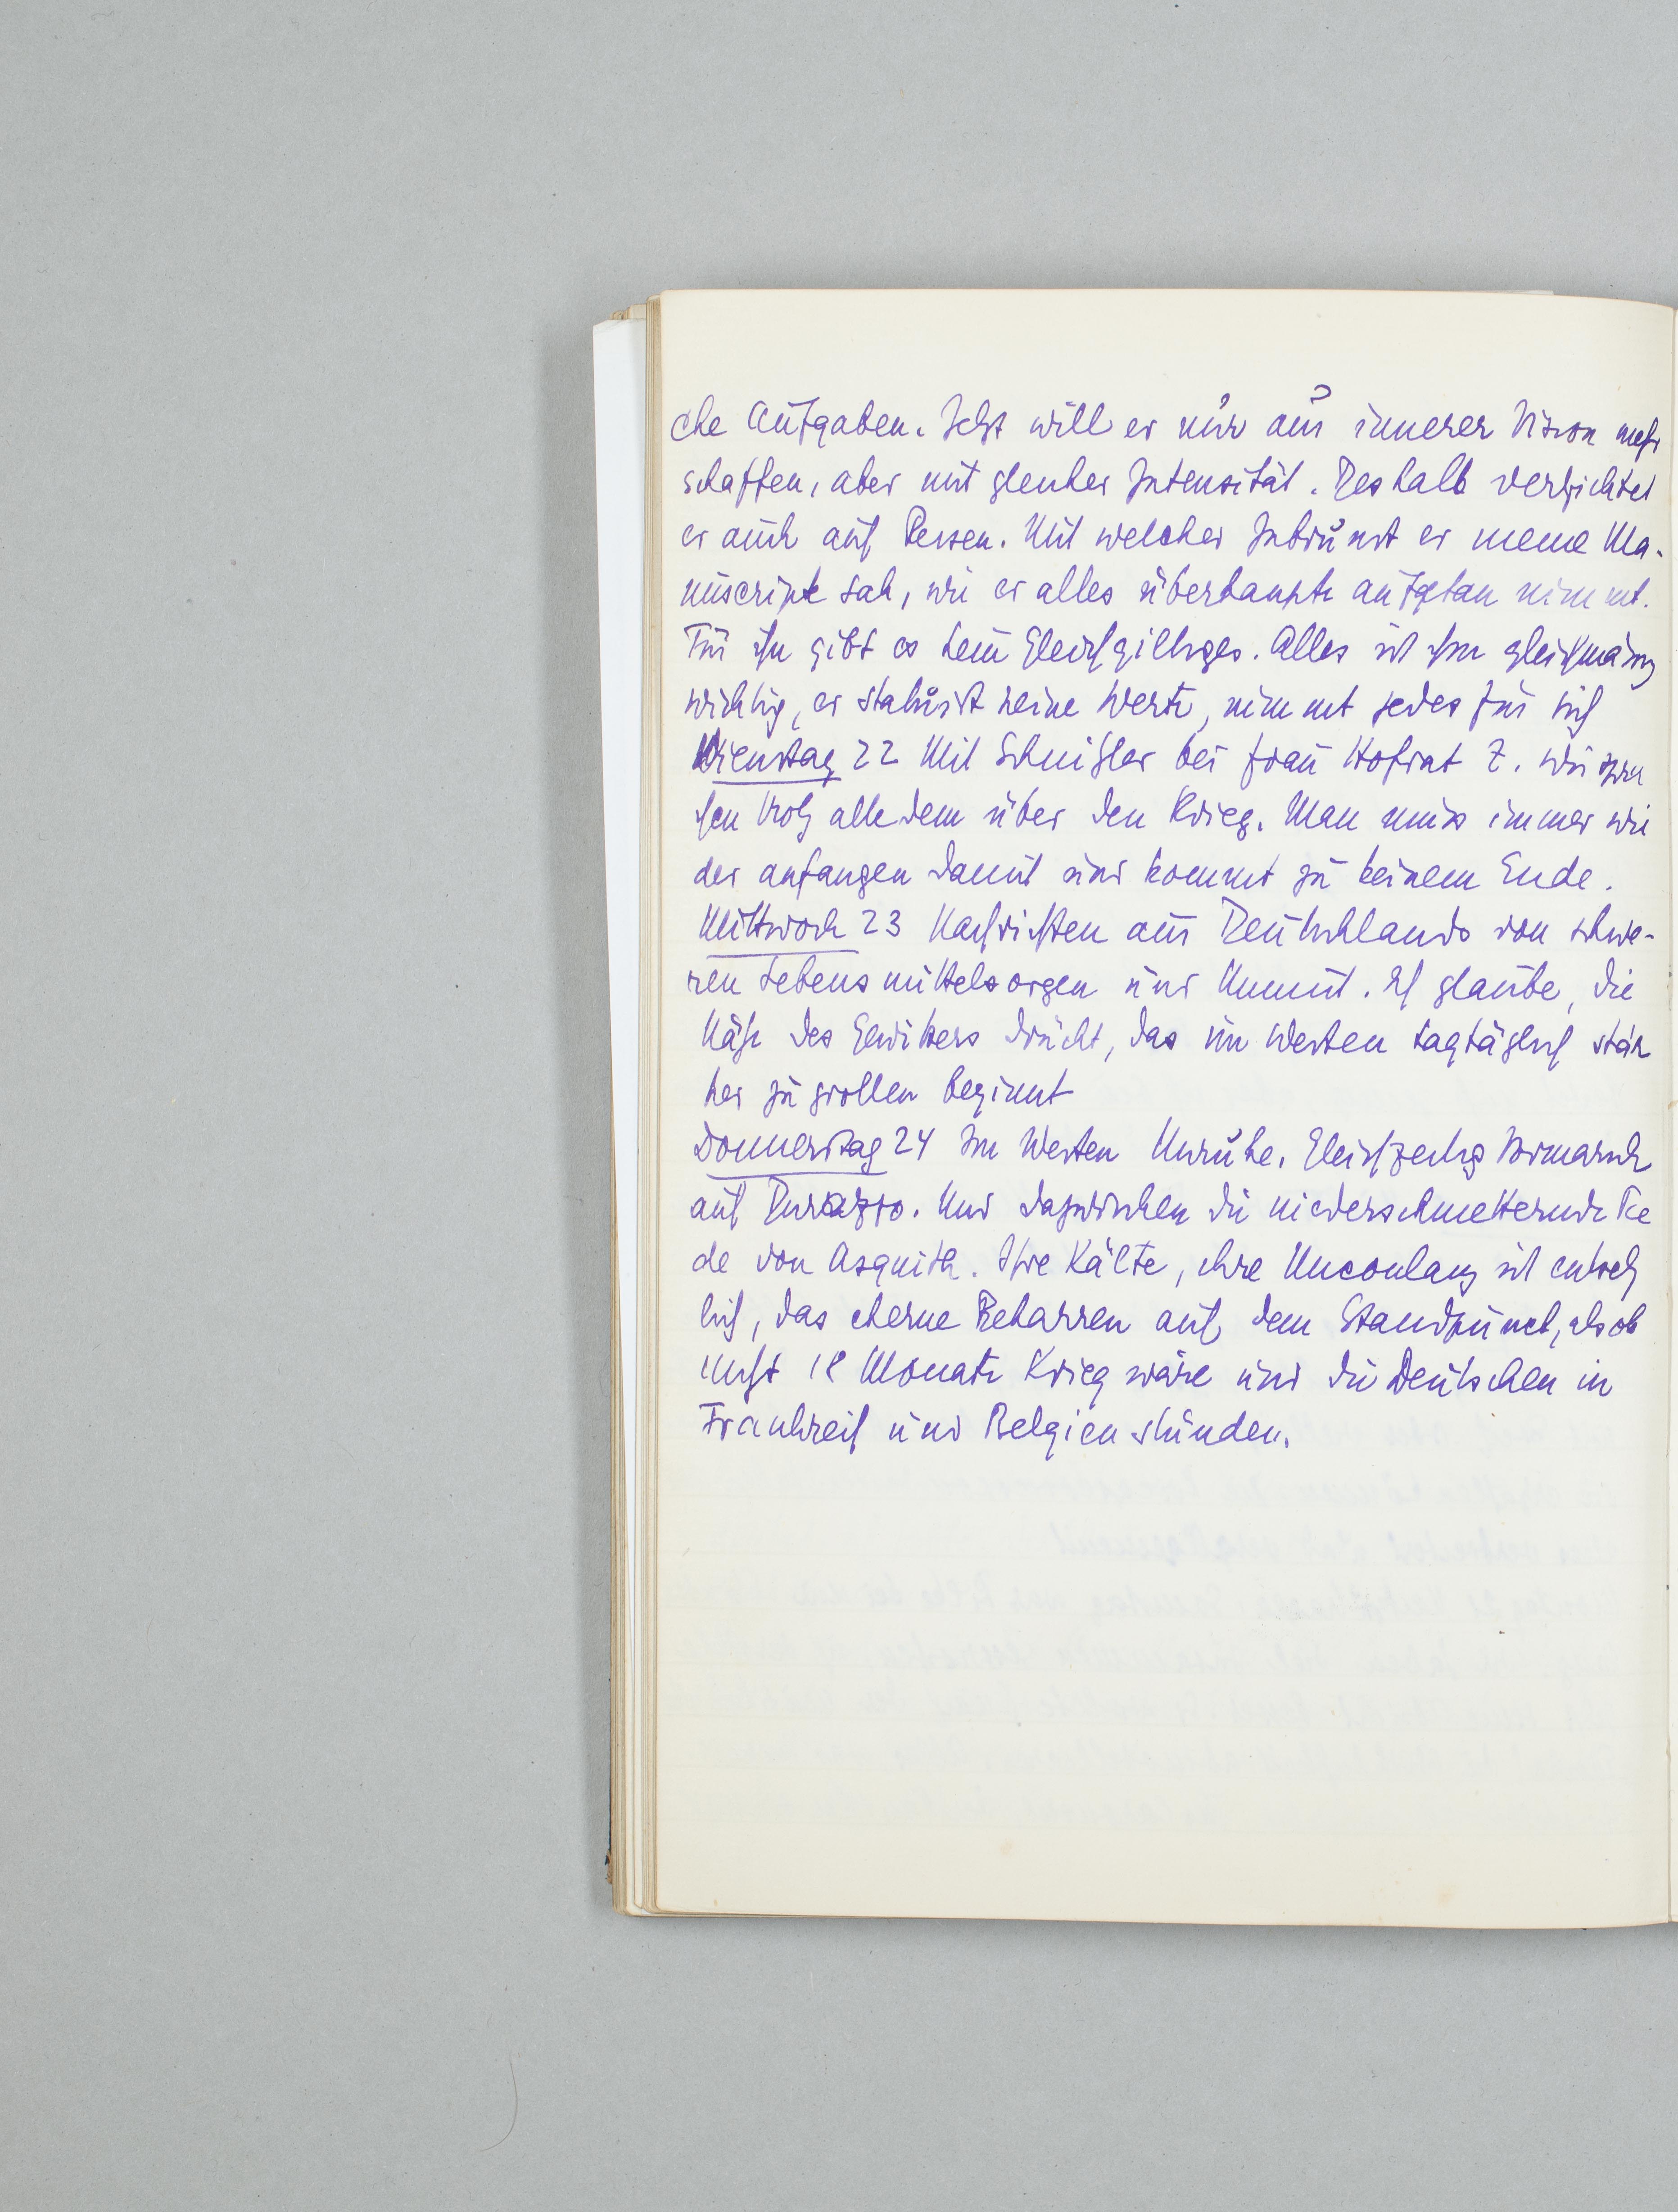 che Aufgaben. Jetzt will er nur aus innerer Vision mehr
schaffen, aber mit gleicher Intensität. Deshalb verzichtet
er auch auf Reisen. Mit welcher Inbrunst er meine Ma-
nuscripte sah, wie er alles überhaupt aufgetan nimmt.
Für ihn gibt es kein Gleichgiltiges. Alles ist ihm gleichmässig
wichtig, er statuirt keine Werte, nimmt jedes für sich
Dienstag 22 Mit Schnitzler bei Frau Hofrat Z. Wir spra
chen trotz alledem über den Krieg. Man muss immer wie
der anfangen damit und kommt zu keinem Ende.
Mittwoch 23 Nachrichten aus Deutschland von schwe-
ren Lebensmittelsorgen und Unmut. Ich glaube, die
Nähe des Gewitters drückt, das im Westen tagtäglich stär
ker zu grollen beginnt
Donnerstag 24 Im Westen Unruhe. Gleichzeitig Vormarsch
auf Durazzo. Und dazwischen die niederschmetternde Re
de von Asquith. Ihre Kälte, ihre Unconlanz ist entsetz
lich, das eherne Beharren auf dem Standpunct, als ob
nicht 18 Monate Krieg wäre und die Deutschen in
Frankreich und Belgien stünden.